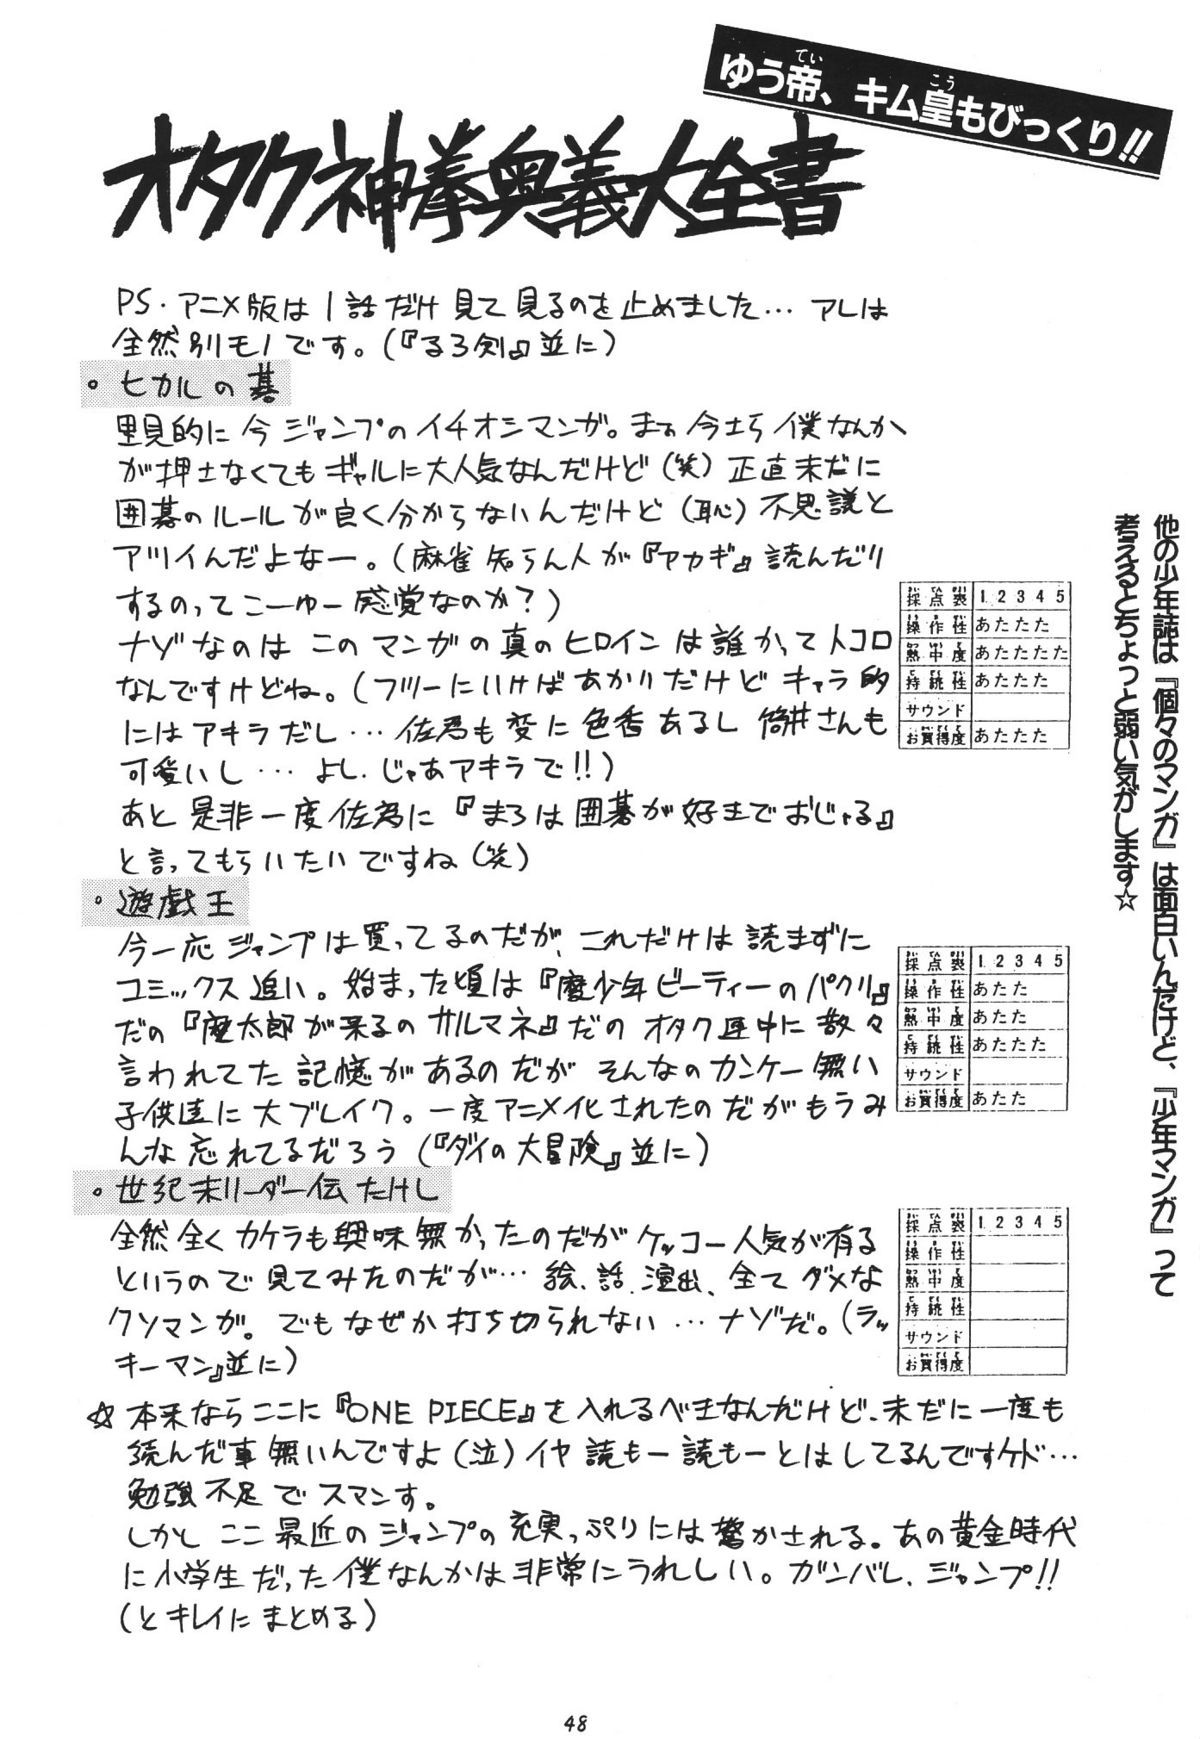 ゆう帝、キム皇もびっくり!!
オタク神拳奥義大全書
PS・アニメ版は1話だけ見て見るのを止めました…アレは
全然別モノです。(『るろ剣』並に)
。ヒカルの碁
里見的に今ジャンプのイチオシマンガ。まぁ今士ら僕なんか
が押士なくてもギャルに大人気なんだけど(笑)正直未だに
囲碁のルールが良く分からないんだけど(恥)不思議と
アツイんだよなー。(麻雀知らん人が『アカギ』読んだり
するのってこーゆー感覚なのか?)
ナゾなのはこのマンガの真のヒロインは誰かってトコロ
なんですけどね。(フツーにいけばあかりだけどキャラ的
にはアキラだし…佐為も変に色香あるし筒井さんも
可愛いし…よし、じゃあアキラで!!)
あと是非一度佐為に『まろは囲碁が好きでおじゃる』
と言ってもらいたいですね(笑)
採点表 1 2 3 4 5
操作性 あたたた
熱中度 あたたたた
持続性 あたたた
サウンド
お買得度 あたたた
。遊戯王
今一応ジャンプは買ってるのだが、これだけは読まずに
コミックス追い。始まった頃は『魔少年ビーティーのパクリ』
だの『魔太郎が来るのサルマネ』だのオタク連中に散々
言われてた記憶があるのだがそんなのカンケー無い
子供達に大ブレイク。一度アニメ化されたのだがもうみ
んな忘れてるだろう(『ダイの大冒険』並に)
採点表 1 2 3 4 5
操作性 あたた
熱中度 あたた
持続性 あたたた
サウンド
お買得度 あたた
。世紀末リーダー伝たけし
全然全くカケラも興味無かったのだがケッコー人気が有る
というので見てみたのだが…絵、話、演出、全てダメな
クソマンガ。でもなぜか打ち切られない…ナゾだ。(ラッ
キーマン』並に)
採点表 1 2 3 4 5
操作性
熱中度
持続性
サウンド
お買得度
☆本来ならここに『ONE PIECE』を入れるべきなんだけど、未だに一度も
読んだ事無いんですよ(泣)イヤ読もー読もーとはしてるんですケド…
勉強不足でスマンす。
しかしここ最近のジャンプの充実っぷりには驚かされる。あの黄金時代
に小学生だった僕なんかは非常にうれしい。ガンバレ、ジャンプ!!
(とキレイにまとめる)
他の少年誌は『個々のマンガ』は面白いんだけど、『少年マンガ』って
考えるとちょっと弱い気がします☆
48